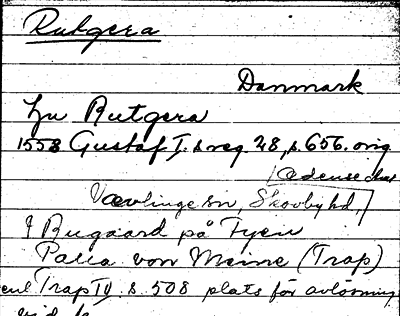 Rutgera
Danmark
hr Rutgera
1558 Gustaf I. s reg. 28, s. 656. orig
Odense
Vævlinge sn, Skovby hd,
Rugaard på Fyen
Palla von Meine (Trap)
enl Trap IV. s. 508 plats för avlösning